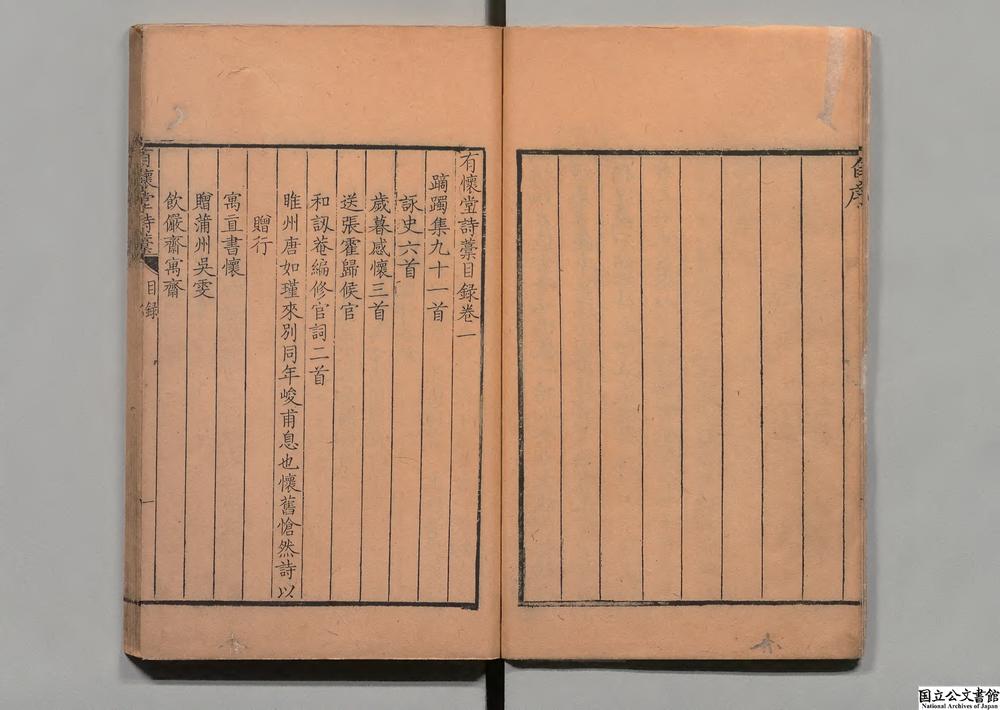 有懷堂詩藁目録卷一
蹢躅集九十一首
詠史六首
歲暮感懷三首
送張霍歸候官
和訒菴編修官詞二首
睢州唐如瑾來別同年峻甫息也懷舊愴然詩以
贈行
寓亘書懷
贈蒲州吳雯
飲嚴齋寓齋
有懷堂詩藁
目録
一
国立公文書館
National Archives of Japan